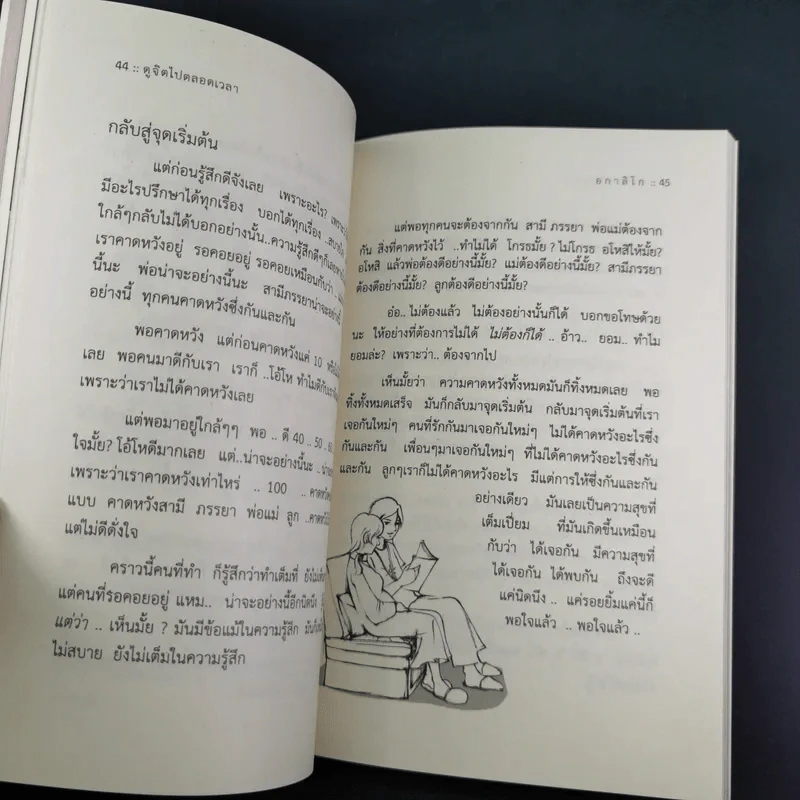 44 :: ดูจิตไปตลอดเวลา
กลับสู่จุดเริ่มต้น
แต่ก่อนรู้สึกดีจังเลย เพราะอะไร? เพราะ
มีอะไรปรึกษาได้ทุกเรื่อง บอกได้ทุกเรื่อง ..สบาย
ใกล้ๆกลับไม่ได้บอกอย่างนั้น..ความรู้สึกดีๆก็เลย
เราคาดหวังอยู่ รอคอยอยู่ รอคอยเหมือนกับว่า
นี้นะ พ่อน่าจะอย่างนี้นะ สามีภรรยาน่าจะอย่างนี้
อย่างนี้ ทุกคนคาดหวังซึ่งกันและกัน
พอคาดหวัง แต่ก่อนคาดหวังแค่ 10
เลย พอคนมาดีกับเรา เราก็ ..โอ้โห ทำไมดีกับเรา
เพราะว่าเราไม่ได้คาดหวังเลย
แต่พอมาอยู่ใกล้ๆๆ พอ .. ดี 40 .. 50 .. 60
ใจมั้ย? โอ้โหดีมากเลย แต่..น่าจะอย่างนี้นะ
เพราะว่าเราคาดหวังเท่าไหร่ .. 100 ..คาดหวัง
แบบ คาดหวังสามี ภรรยา พ่อแม่ ลูก
แต่ไม่ดีดั่งใจ
คราวนี้คนที่ทำ ก็รู้สึกว่าทำเต็มที่
แต่คนที่รอคอยอยู่ แหม.. น่าจะอย่างนี้อีกนิดนึง
แต่ว่า .. เห็นมั้ย ? มันมีข้อแม้ในความรู้สึก
ไม่สบาย ยังไม่เต็มในความรู้สึก
อกาลิโก :: 45
แต่พอทุกคนจะต้องจากกัน สามี ภรรยา พ่อแม่ต้องจาก
กัน สิ่งที่คาดหวังไว้ ..ทำไม่ได้ โกรธมั้ย ? ไม่โกรธ อโหสิให้มั้ย?
อโหสิ แล้วพ่อต้องดีอย่างนี้มั้ย? แม่ต้องดีอย่างนี้มั้ย? สามีภรรยา
ต้องดีอย่างนี้มั้ย? ลูกต้องดีอย่างนี้มั้ย?
อ๋อ.. ไม่ต้องแล้ว ไม่ต้องอย่างนั้นก็ได้ บอกขอโทษด้วย
นะ ให้อย่างที่ต้องการไม่ได้ ไม่ต้องก็ได้ .. อ้าว.. ยอม.. ทำไม
ยอมล่ะ? เพราะว่า.. ต้องจากไป
เห็นมั้ยว่า ความคาดหวังทั้งหมดมันก็ทิ้งหมดเลย พอ
ทิ้งทั้งหมดเสร็จ มันก็กลับมาจุดเริ่มต้น กลับมาจุดเริ่มต้นที่เรา
เจอกันใหม่ๆ คนที่รักกันมาเจอกันใหม่ๆ ไม่ได้คาดหวังอะไรซึ่ง
กันและกัน เพื่อนๆมาเจอกันใหม่ๆ ที่ไม่ได้คาดหวังอะไรซึ่งกัน
และกัน ลูกๆเราก็ไม่ได้คาดหวังอะไร มีแต่การให้ซึ่งกันและกัน
อย่างเดียว มันเลยเป็นความสุขที่
เต็มเปี่ยม ที่มันเกิดขึ้นเหมือน
กับว่า ได้เจอกัน มีความสุขที่
ได้เจอกัน ได้พบกัน ถึงจะดี
แค่นิดนึง .. แค่รอยยิ้มแค่นี้ก็
พอใจแล้ว .. พอใจแล้ว ..